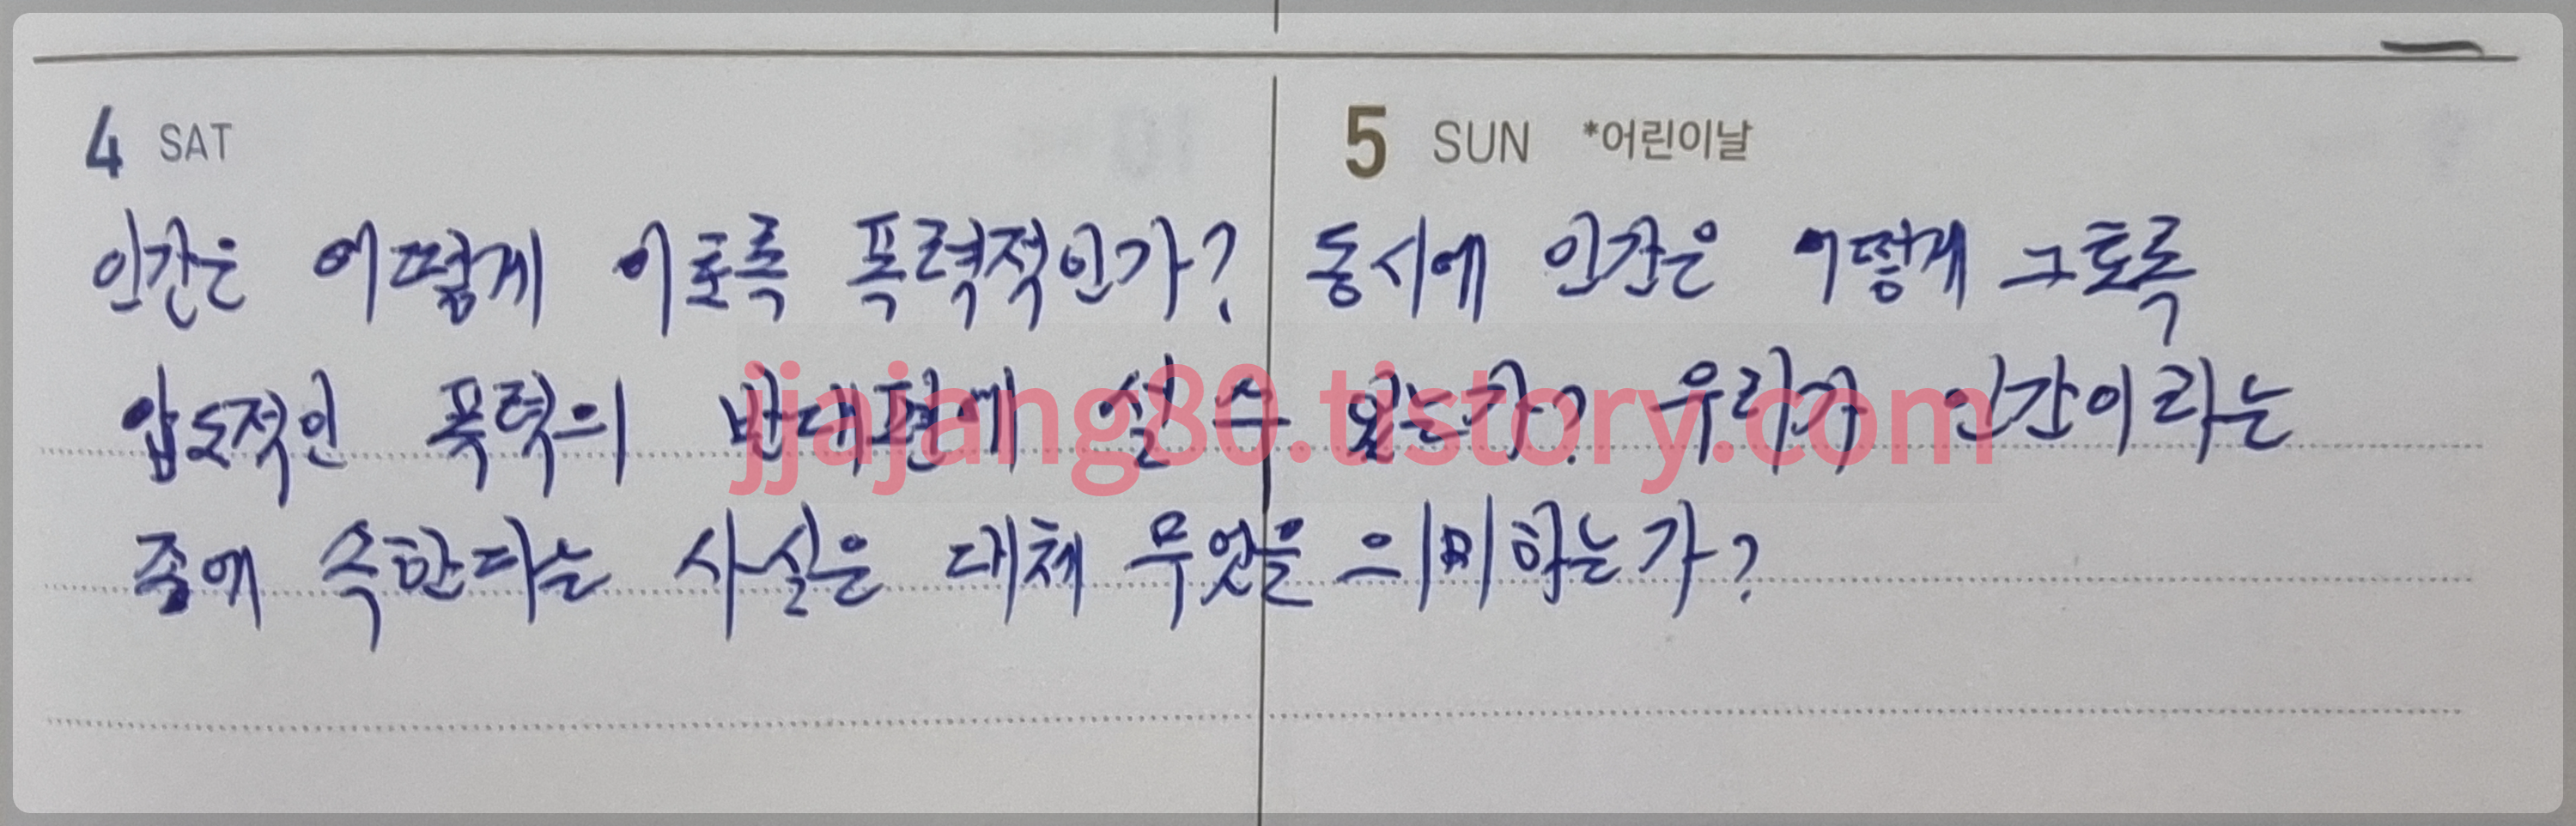 4 SAT
5 SUN *어린이날
인간은 어떻게 이토록 폭력적인가? 동시에 인간은 어떻게 그토록
압도적인 폭력의 반대편에 설 수 있는가? 우리가 인간이라는
종에 속한다는 사실은 대체 무엇을 의미하는가?
jjajang80.tistory.com